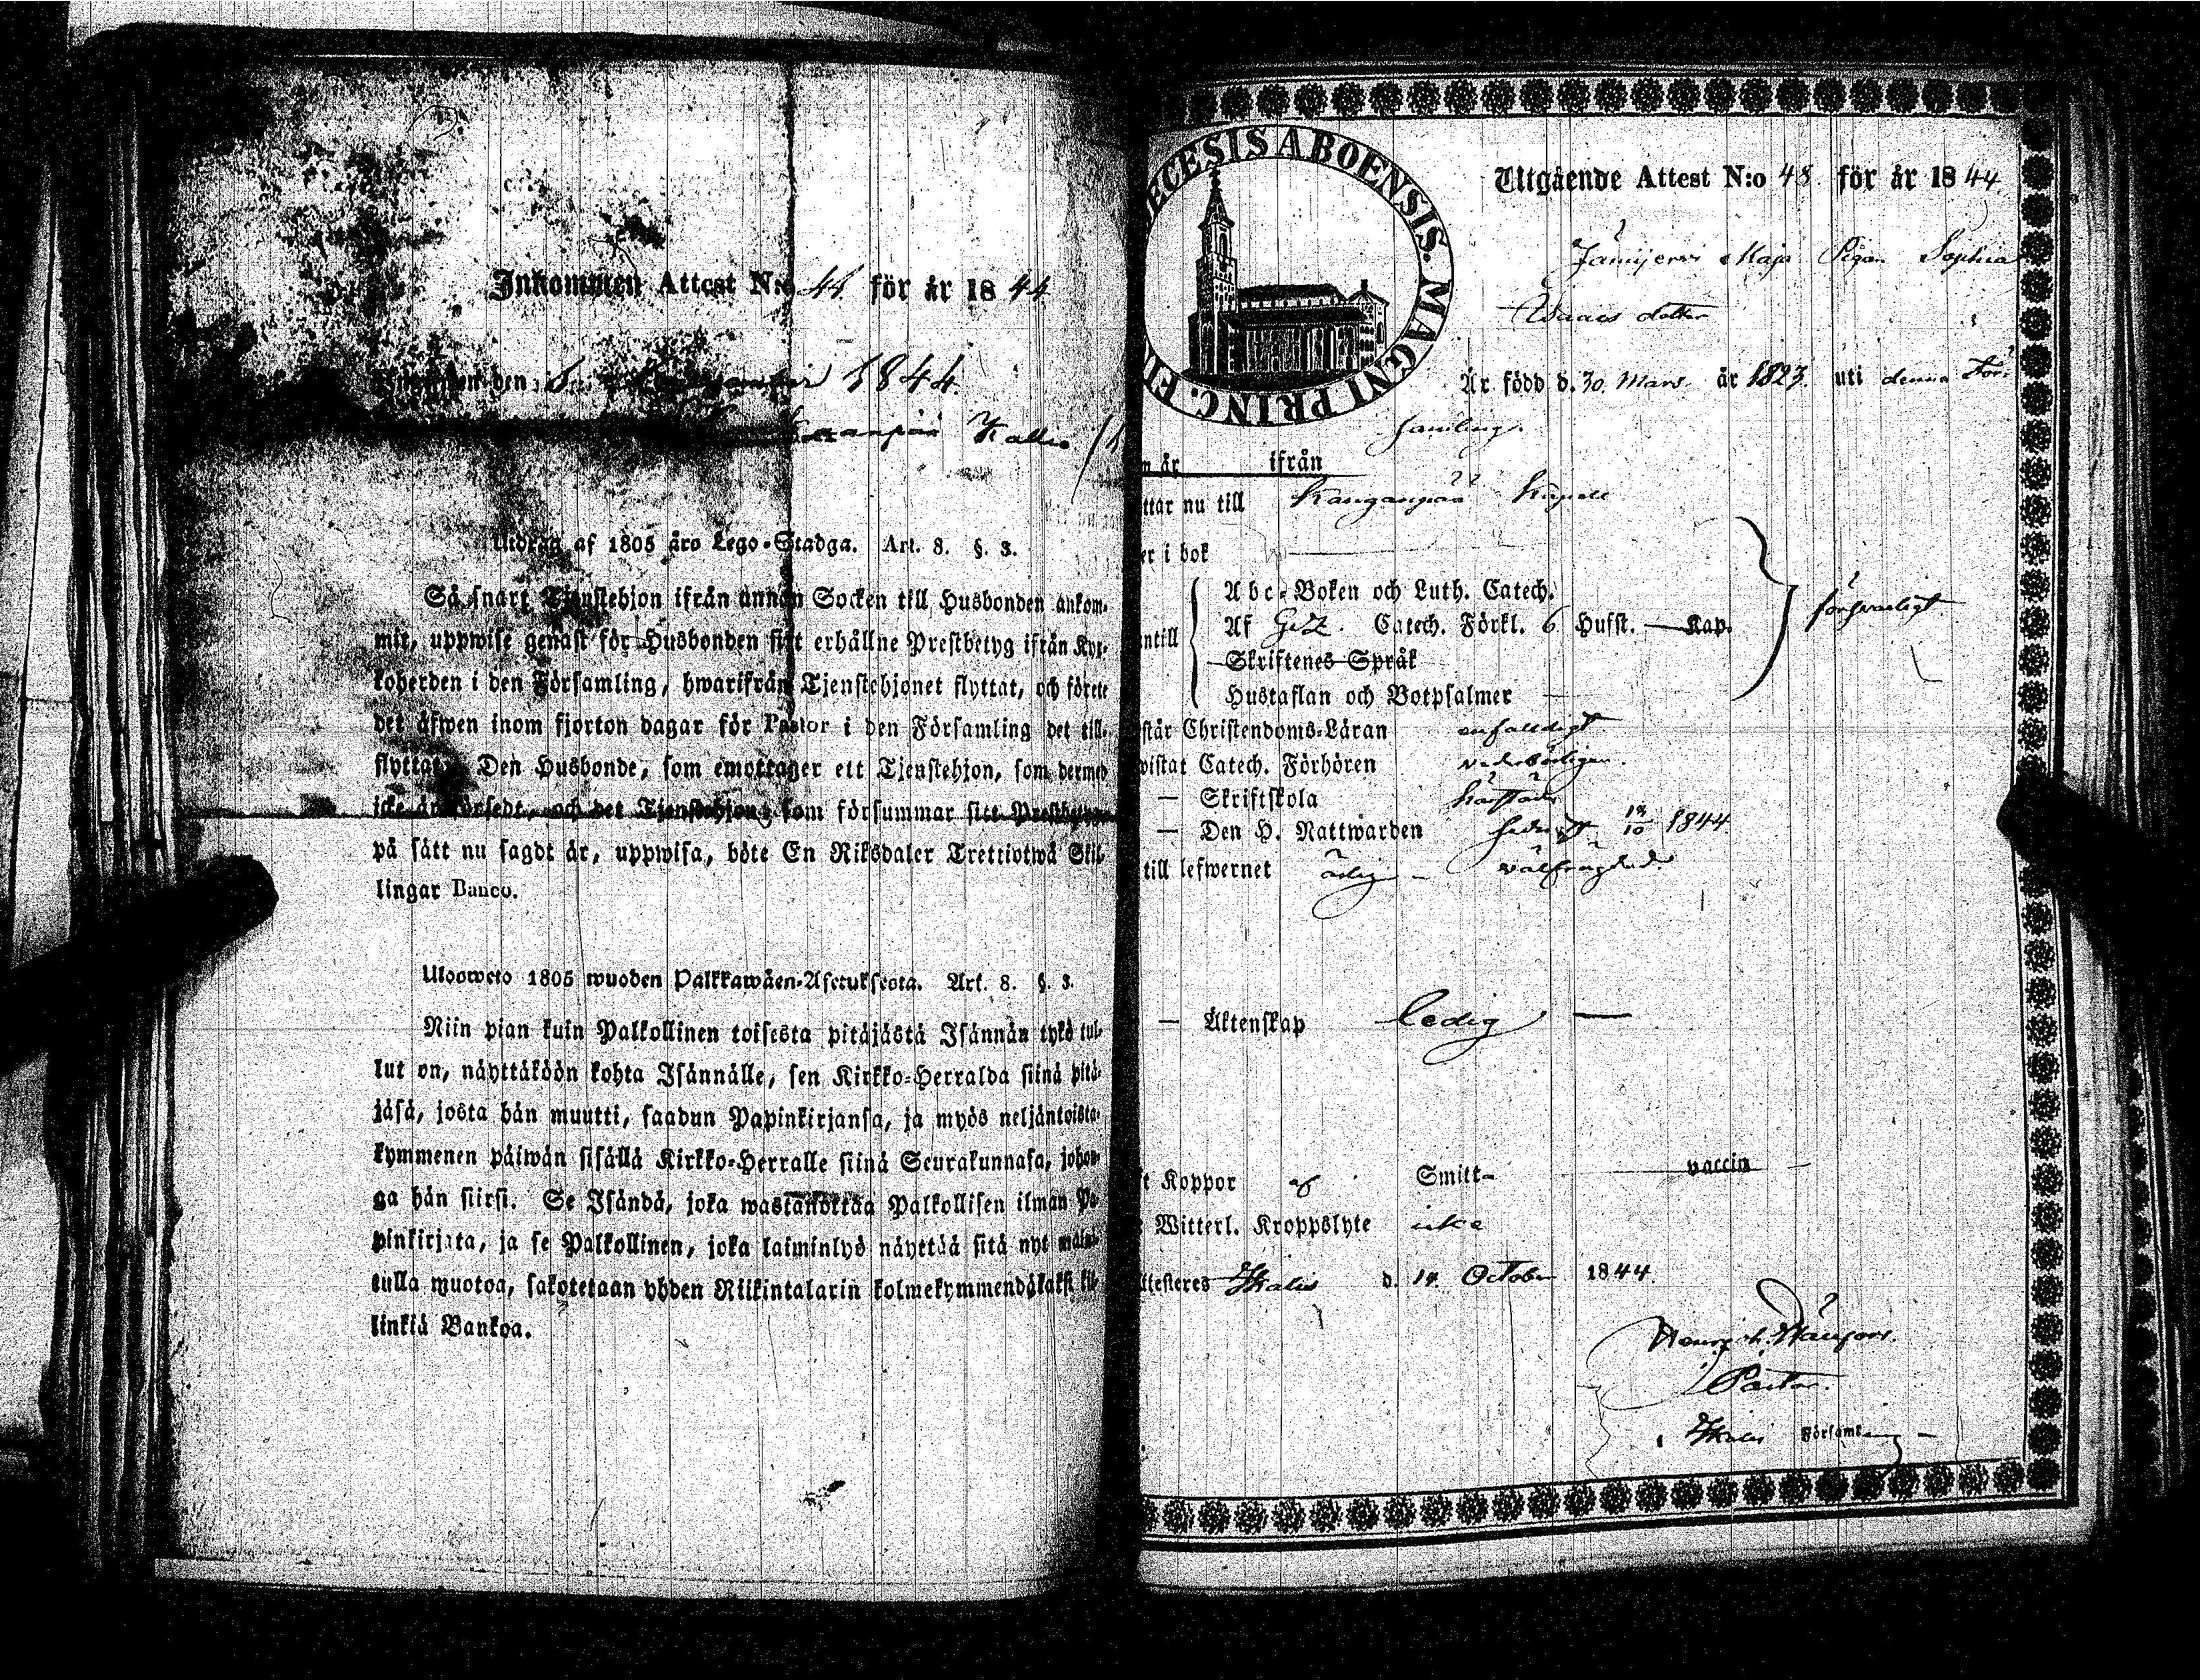 Inkommen Attest N:o 44 för år 1844
den 1844.
Kallio
Utdrag af 1805 års Lego-Stadga. Art. 8. §. 3.
Så snart Tjenstehjon ifrån annan Socken till Husbonden ankom-
mit, uppwise genast för Husbonden sitt erhållne Prestbetyg ifrån Kyr-
koherden i den Församling, hwarifrån Tjenstehjonet flyttat, och förete
det äfwen inom fjorton dagar för Pastor i den Församling det till-
flyttat. Den Husbonde, som emottager ett Tjenstehjon, som dermed
icke är försedt, och det Tjenstehjon, som försummar sitt Prestbetyg
på sätt nu sagdt är, uppwisa, böte En Riksdaler Trettiotwå Skil-
lingar Banco.
Ulosweto 1805 wuoden Palkkawäen-Asetuksesta. Art. 8. §. 3.
Niin pian kuin Palkollinen toisesta pitäjästä Isännän tykö tul-
lut on, näyttäköön kohta Isännälle, sen Kirkko-Herralda siinä pitä-
jäsä, josta hän muutti, saadun Papinkirjansa, ja myös neljäntoista-
kymmenen päiwän sisällä Kirkko-Herralle siinä Seurakunnasa, johon-
ga hän siirsi. Se Isändä, joka wastanottaa Palkollisen ilman Pa-
pinkirjata, ja se Palkollinen, joka laiminlyö näyttää sitä nyt mainit-
tulla muotoa, sakotetaan yhden Riikintalarin kolmekymmendäkaksi kil-
linkiä Bankoa.
ECESIS ABOENSIS. MAGNI PRINC. FI
Utgående Attest N:o 48 för år 1844
Jämijervi Maja Pigan Sophia
dotter
Är född d. 30 Mars. år 1823. uti denna För-
samling.
n år ifrån
ttar nu till Kangaspää Kapell
er i bok
Abc-Boken och Luth. Catech.
Af Catech. Förkl. 6 Hufst. Kap.
försvarligt
ntill
Skriftenes Språk
Hustaflan och Botpsalmer
står Christendoms-Läran enfaldigt
vistat Catech. Förhören vederbörligen.
— Skriftskola
— Den H. Nattwarden sednast 1844
till lefwernet ärlig - välfrägdad.
— Äktenskap ledig —
t Koppor af Smitt- vaccin
Witterl. Kroppslyte icke
ttesteres Ikalis d. 14. October 1844.
Pastor.
i Ikalis Församling